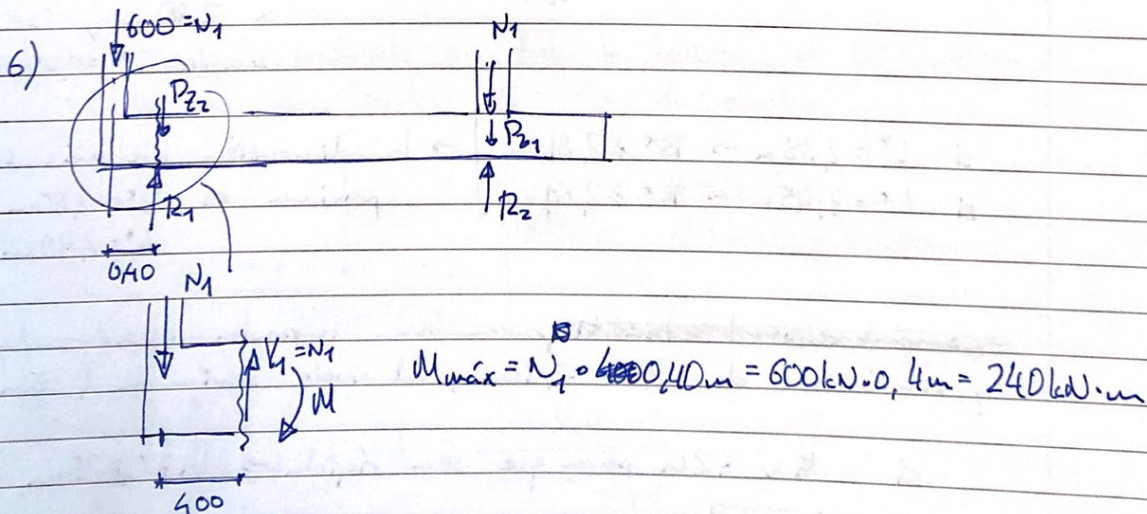 6)
600 = N1
N1
Pz2
R1
R2
0,40
N1
V1 = N1
M
Mmáx = N1 · 0,40m = 600kN · 0,4m = 240kN·m
400